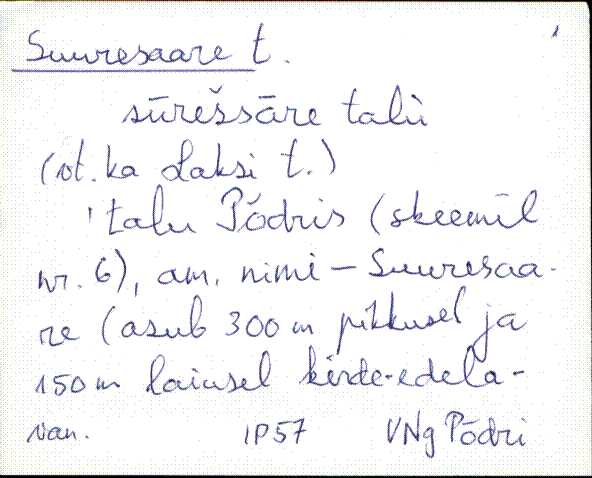 Suuresaare t.
sūrešsāre talù
(vt. ka Laksi t.)
'talu Põdris (skeemil
nr. 6), am. nimi – Suuresaa-
re (asub 300 m pikkusel ja
150 m laiusel kirde-edela-
van. IP57 VNg Põdri